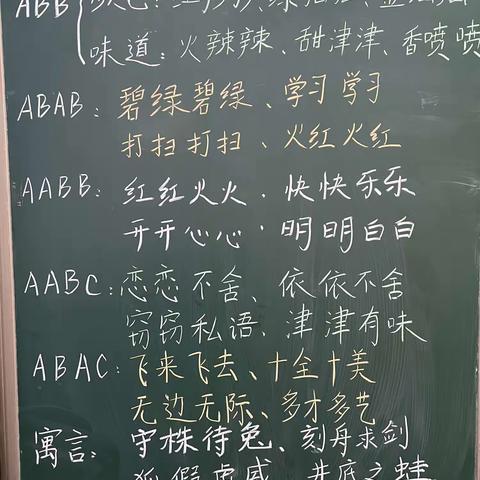 ABB
味道：火辣辣、甜津津、香喷喷
ABAB：碧绿碧绿、学习学习
打扫打扫、火红火红
AABB：红红火火、快快乐乐
开开心心、明明白白
AABC：恋恋不舍、依依不舍
窃窃私语、津津有味
ABAC：飞来飞去、十全十美
无边无际、多才多艺
寓言：守株待兔、刻舟求剑
狐假虎威、井底之蛙